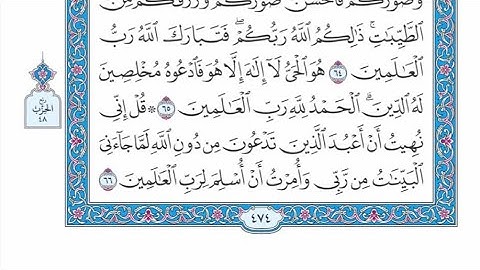 وَصَوَّرَكُمْ فَأَحْسَنَ صُوَرَكُمْ وَرَزَقَكُم مِّنَ
ٱلطَّيِّبَٰتِ ۚ ذَٰلِكُمُ ٱللَّهُ رَبُّكُمْ ۖ فَتَبَارَكَ ٱللَّهُ رَبُّ
ٱلْعَٰلَمِينَ ٦٤ هُوَ ٱلْحَىُّ لَآ إِلَٰهَ إِلَّا هُوَ فَٱدْعُوهُ مُخْلِصِينَ
لَهُ ٱلدِّينَ ۗ ٱلْحَمْدُ لِلَّهِ رَبِّ ٱلْعَٰلَمِينَ ٦٥ ۞ قُلْ إِنِّى
نُهِيتُ أَنْ أَعْبُدَ ٱلَّذِينَ تَدْعُونَ مِن دُونِ ٱللَّهِ لَمَّا جَآءَنِىَ
ٱلْبَيِّنَٰتُ مِن رَّبِّى وَأُمِرْتُ أَنْ أُسْلِمَ لِرَبِّ ٱلْعَٰلَمِينَ ٦٦
ربع
الحزب
٤٨
٤٧٤